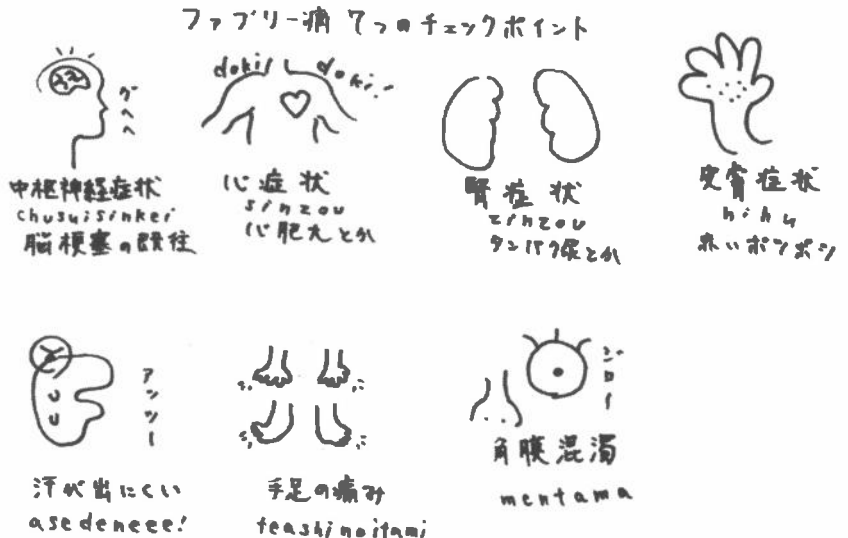 ファブリー病 7つのチェックポイント
グヘヘ
中枢神経症状
chusuisinkei
脳梗塞の既往
doki! doki!
心症状
sinzou
心肥大とか
腎症状
zinzou
タンパク尿とか
皮膚症状
hihu
赤いポツポツ
アッツー
汗が出にくい
asedeneee!
手足の痛み
teashinoitami
ジロー
角膜混濁
mentama